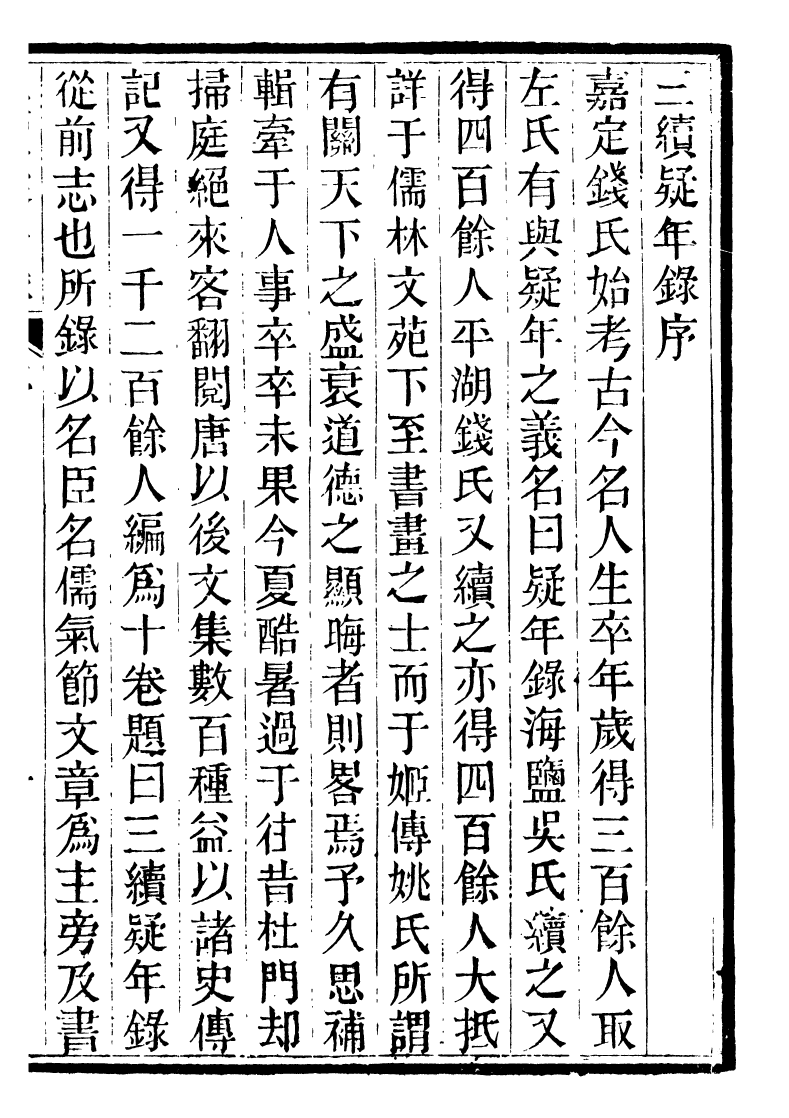 三續疑年錄序
嘉定錢氏始考古今名人生卒年歲得三百餘人取
左氏有與疑年之義名曰疑年錄海鹽吳氏續之又
得四百餘人平湖錢氏又續之亦得四百餘人大抵
詳于儒林文苑下至書畫之士而于姬傳姚氏所謂
有關天下之盛衰道德之顯晦者則畧焉予久思補
輯牽于人事卒卒未果今夏酷暑過于往昔杜門却
掃庭絕來客翻閱唐以後文集數百種益以諸史傳
記又得一千二百餘人編爲十卷題曰三續疑年錄
從前志也所錄以名臣名儒氣節文章爲主旁及書